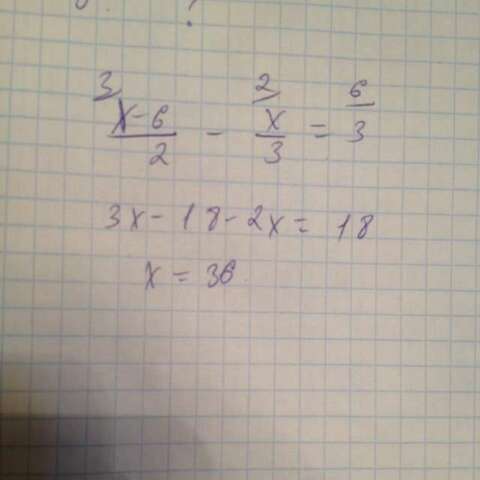 ?
3 2 6
x-6/2 - x/3 = 3
3x - 18 - 2x = 18
x = 36